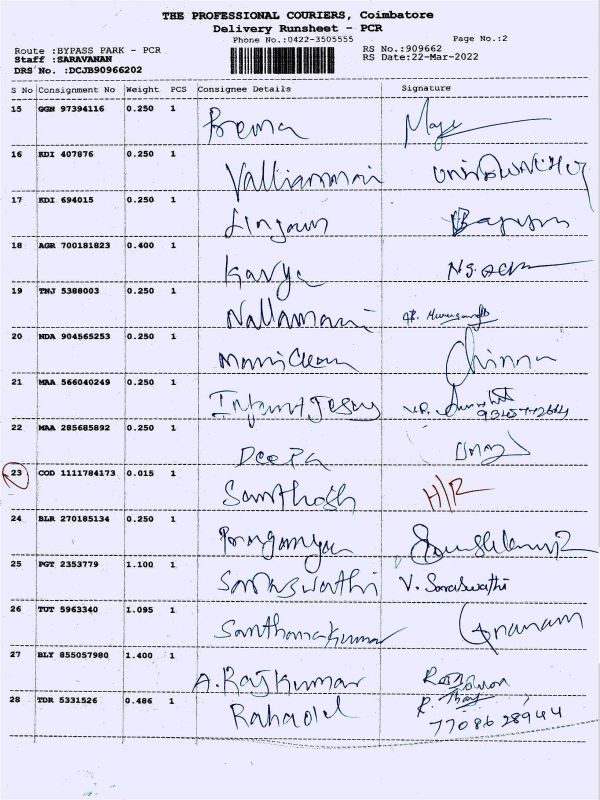 THE PROFESSIONAL COURIERS, Coimbatore
Delivery Runsheet - PCR
Phone No.:0422-3505555 Page No.:2
Route :BYPASS PARK - PCR RS No.:909662
Staff :SARAVANAN RS Date:22-Mar-2022
DRS No. :DCJB90966202
S No Consignment No Weight PCS Consignee Details Signature
15 GGN 97394116 0.250 1 Prema
16 KDI 407876 0.250 1 Valliammai
17 KDI 694015 0.250 1
18 AGR 700181823 0.400 1 Kavya
19 TNJ 5388003 0.250 1 Nallamani
20 NDA 904565253 0.250 1 Chinna
21 MAA 566040249 0.250 1 Infant Jesus
22 MAA 285685892 0.250 1 Deepa
23 COD 1111784173 0.015 1 Santhosh H/R
24 BLR 270185134 0.250 1
25 PGT 2353779 1.100 1 Saraswathi V. Saraswathi
26 TUT 5963340 1.095 1 Santhanakumar Gnanam
27 BLY 855057980 1.400 1 A. Rajkumar
28 TDR 5331526 0.486 1
7708628944